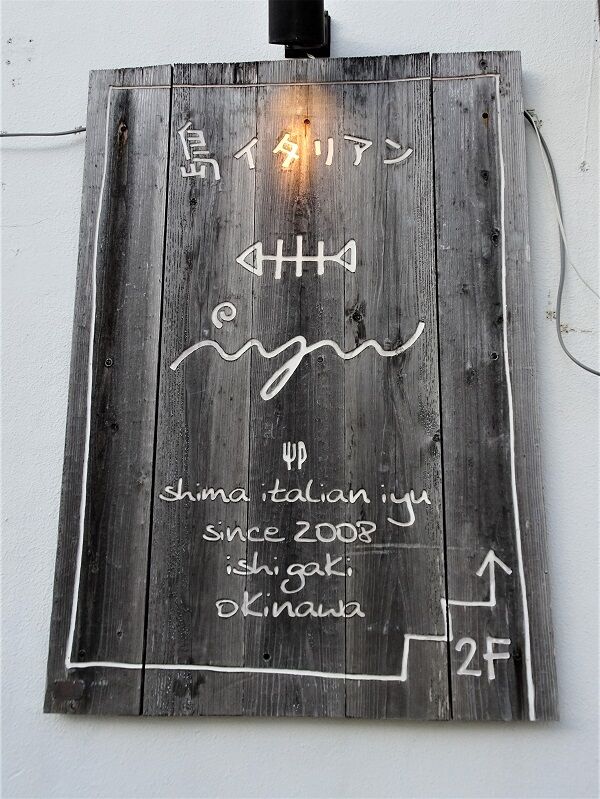 島イタリアン
iyu
shima italian iyu
since 2008
ishigaki
okinawa
2F